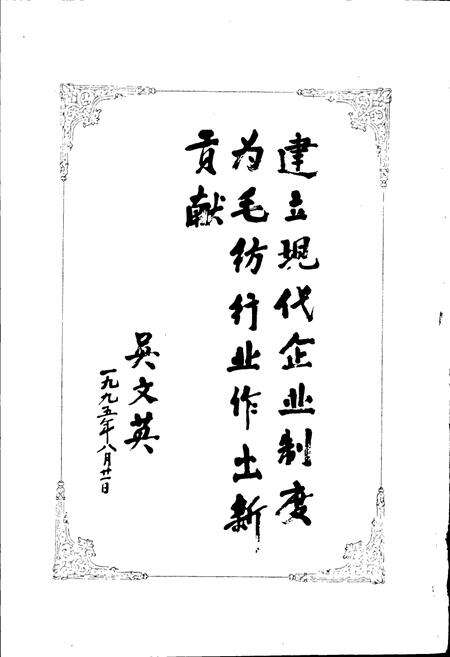 建立现代企业制度
为毛纺行业作出新
贡献
吴文英
一九九五年八月廿一日